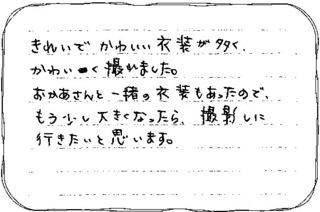 きれいで かわいい 衣装が多く、
かわいく 撮れました。
おかあさんと 一緒の 衣装もあったので、
もう少し 大きくなったら、撮影しに
行きたいと 思います。